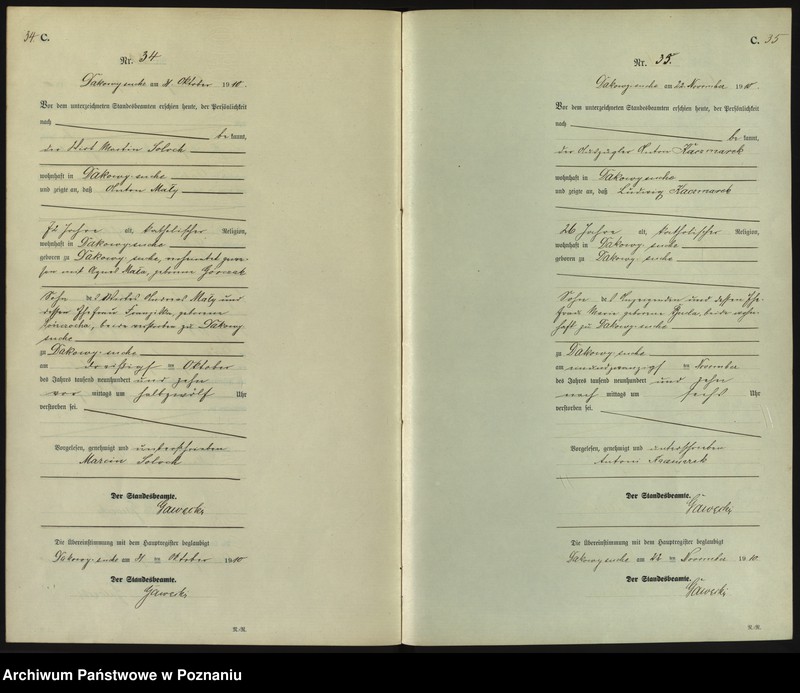 34 C.
Nr. 34
Dakowy suche am 31 Oktober 1910.
Vor dem unterzeichneten Standesbeamten erschien heute, der Persönlichkeit
nach
bekannt,
der Wirt Martin Soloch
wohnhaft in Dakowy suche
und zeigte an, daß Anton Mały
72 Jahre alt, katholischer Religion,
wohnhaft in Dakowy suche
geboren zu Dakowy suche, verheiratet
mit Agnes Mała, geborene
Sohn des Andreas Mały und
dessen Ehefrau geborene
beide verstorben zu Dakowy
suche
zu Dakowy suche
am dreißigsten Oktober
des Jahres tausend neunhundert und zehn
vor mittags um halb zwölf Uhr
verstorben sei.
Vorgelesen, genehmigt und unterschrieben
Marcin Soloch
Der Standesbeamte.
Gawecki
Die Übereinstimmung mit dem Hauptregister beglaubigt
Dakowy suche am 31 ten Oktober 1910
Der Standesbeamte.
Gawecki
R.-R.
C. 35
Nr. 35.
Dakowy suche am 22. November 1910.
Vor dem unterzeichneten Standesbeamten erschien heute, der Persönlichkeit
nach
bekannt,
der Auszügler Anton Kaczmarek
wohnhaft in Dakowy suche
und zeigte an, daß Ludwig Kaczmarek
26 Jahre alt, katholischer Religion,
wohnhaft in Dakowy suche
geboren zu Dakowy suche
Sohn des Anzeigenden und dessen Ehe-
frau Marie geborene beide wohn-
haft zu Dakowy suche
zu Dakowy suche
am einundzwanzigsten November
des Jahres tausend neunhundert und zehn
nach mittags um sechs Uhr
verstorben sei.
Vorgelesen, genehmigt und unterschrieben
Antoni Kaczmarek
Der Standesbeamte.
Gawecki
Die Übereinstimmung mit dem Hauptregister beglaubigt
Dakowy suche am 22 ten November 1910
Der Standesbeamte.
Gawecki
R.-R.
Archiwum Państwowe w Poznaniu